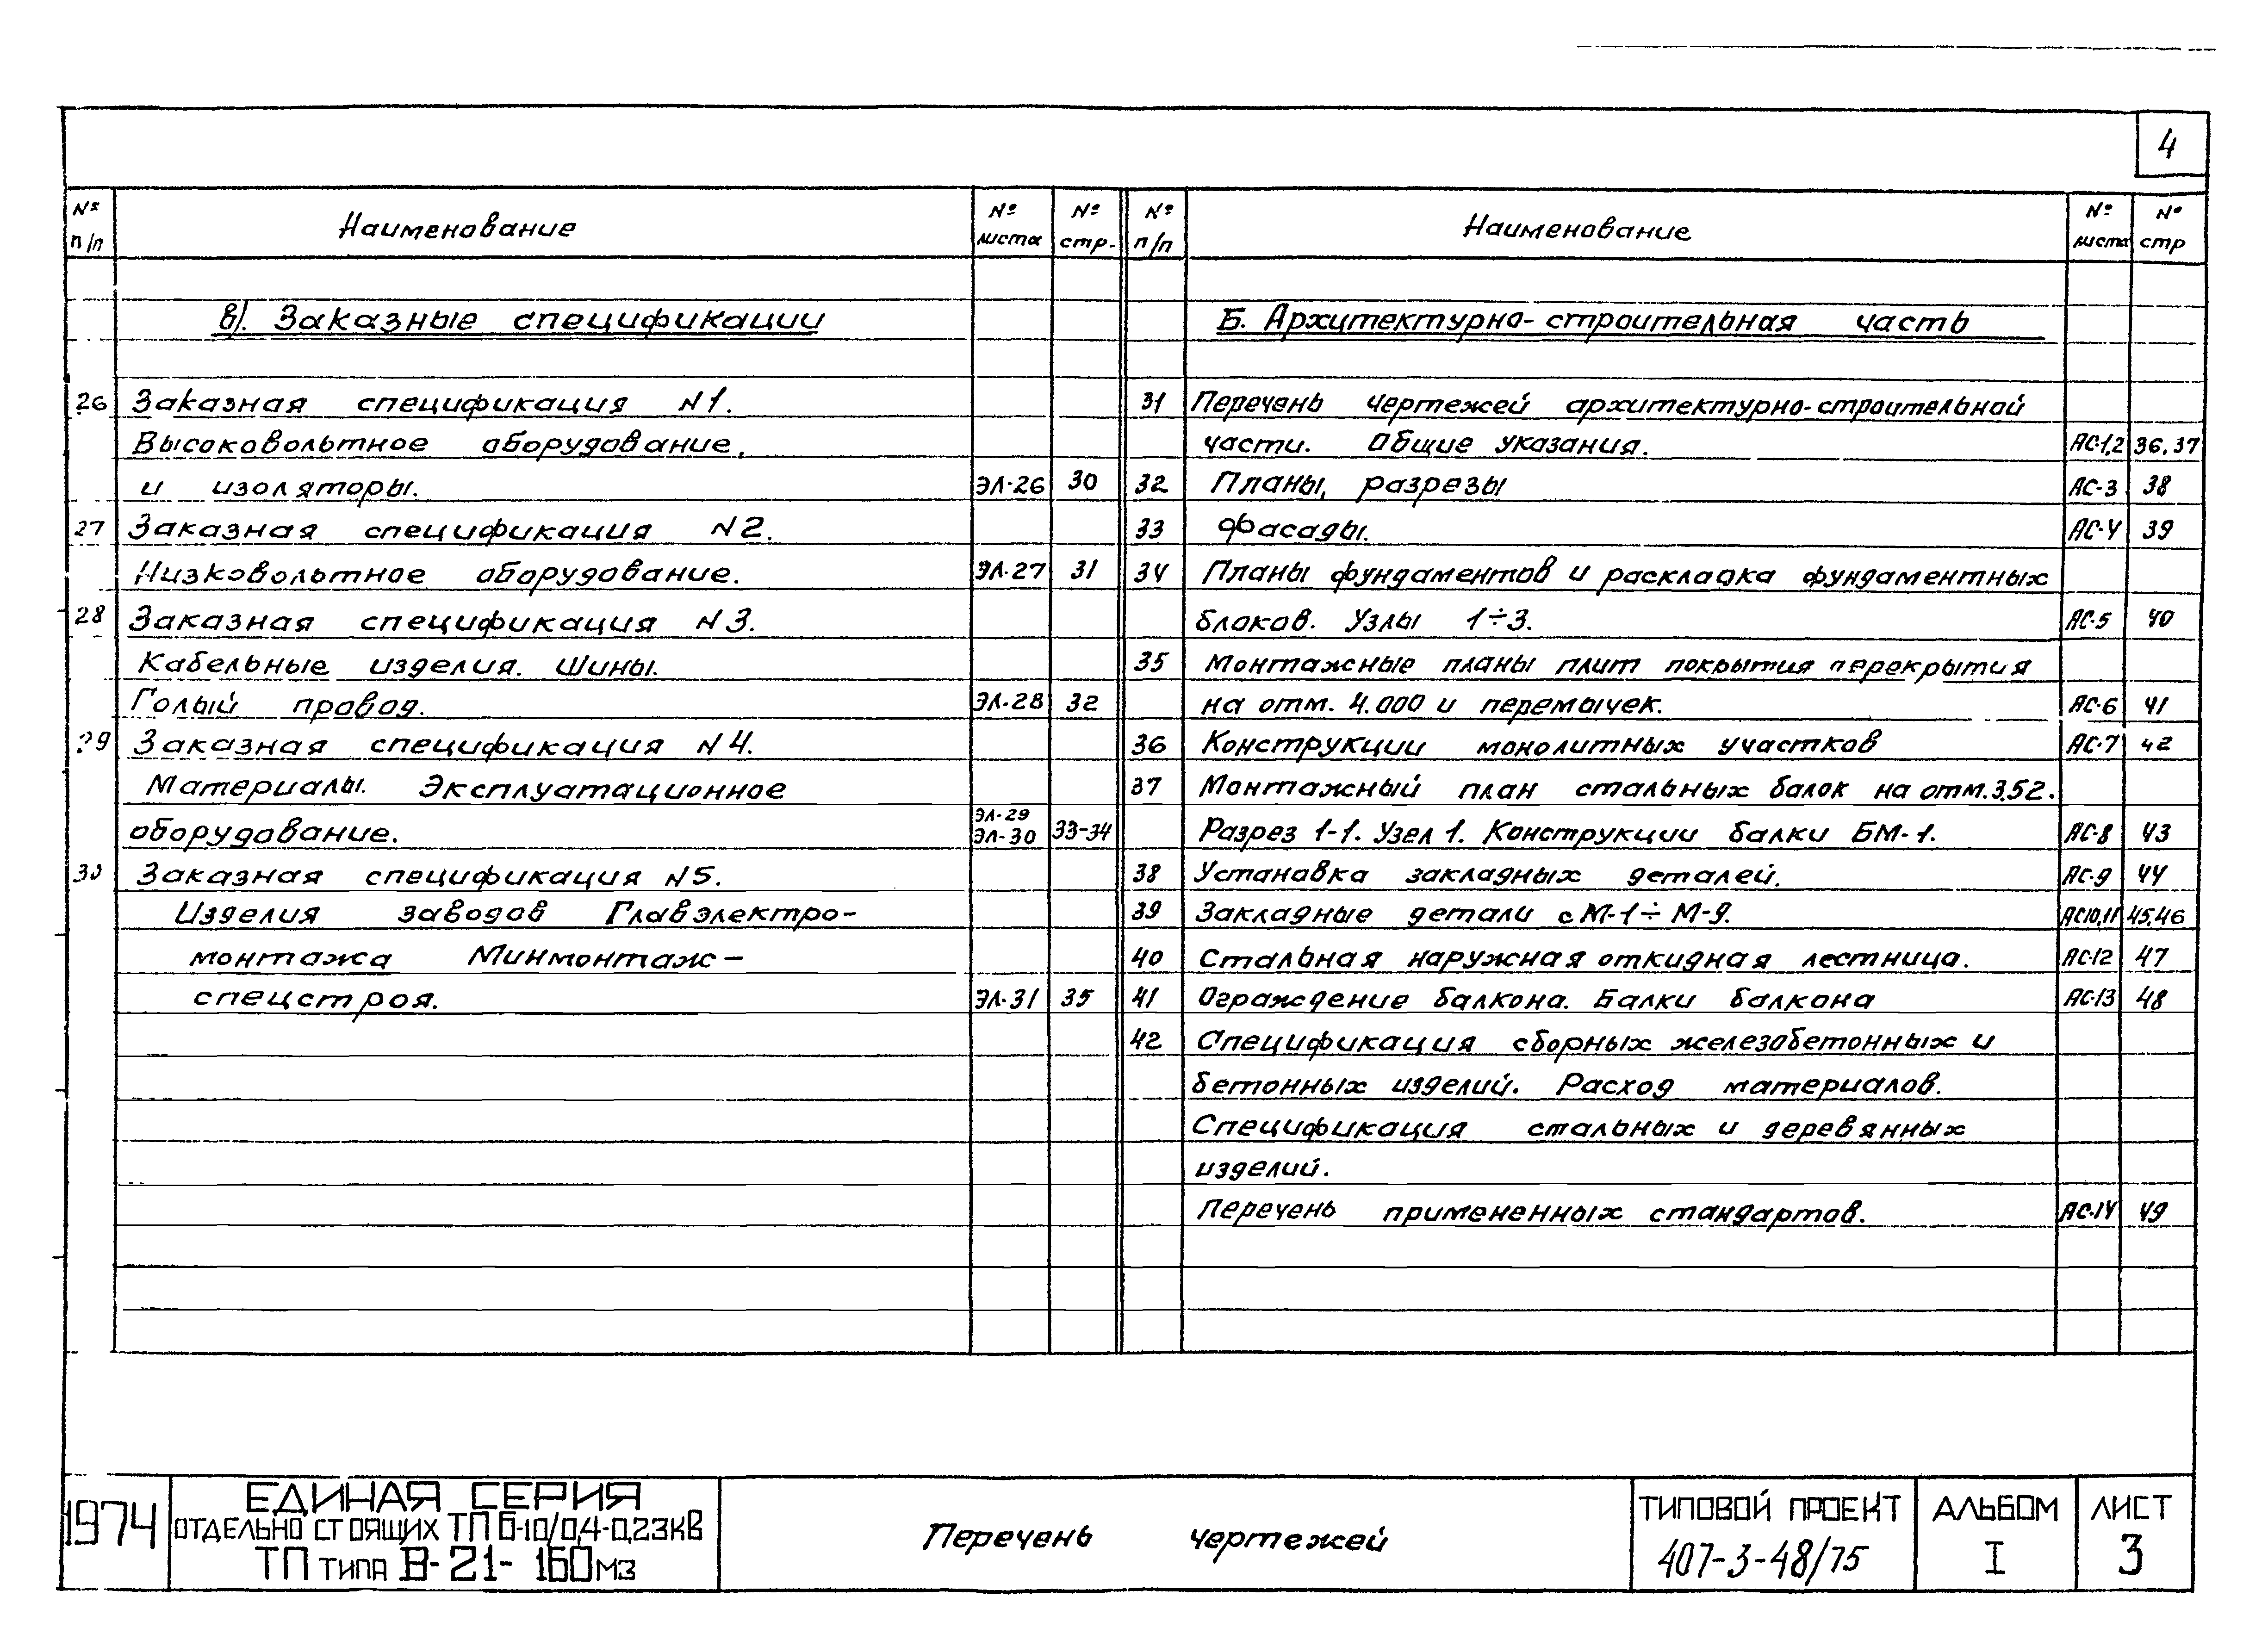 4
№ п/п Наименование № листа № стр.
в). Заказные спецификации
26 Заказная спецификация N1.
Высоковольтное оборудование,
и изоляторы. ЭЛ-26 30
27 Заказная спецификация N2.
Низковольтное оборудование. ЭЛ-27 31
28 Заказная спецификация N3.
Кабельные изделия. Шины.
Голый провод. ЭЛ-28 32
29 Заказная спецификация N4.
Материалы. Эксплуатационное
оборудование. ЭЛ-29 ЭЛ-30 33-34
30 Заказная спецификация N5.
Изделия заводов Главэлектро-
монтажа Минмонтаж-
спецстроя. ЭЛ-31 35
№ п/п Наименование № листа № стр
Б. Архитектурно-строительная часть
31 Перечень чертежей архитектурно-строительной
части. Общие указания. АС-1,2 36,37
32 Планы, разрезы АС-3 38
33 Фасады. АС-4 39
34 Планы фундаментов и раскладка фундаментных
блоков. Узлы 1÷3. АС-5 40
35 Монтажные планы плит покрытия перекрытия
на отм. 4.000 и перемычек. АС-6 41
36 Конструкции монолитных участков АС-7 42
37 Монтажный план стальных балок на отм.3,52.
Разрез 1-1. Узел 1. Конструкции балки БМ-1. АС-8 43
38 Установка закладных деталей. АС-9 44
39 Закладные детали с М-1÷М-9. АС10,11 45,46
40 Стальная наружная откидная лестница. АС-12 47
41 Ограждение балкона. Балки балкона АС-13 48
42 Спецификация сборных железобетонных и
бетонных изделий. Расход материалов.
Спецификация стальных и деревянных
изделий.
Перечень примененных стандартов. АС-14 49
1974
ЕДИНАЯ СЕРИЯ
ОТДЕЛЬНО СТОЯЩИХ ТП 6-10/0,4-0,23КВ
ТП ТИПА В-21-160М3
Перечень чертежей
ТИПОВОЙ ПРОЕКТ
407-3-48/75
АЛЬБОМ
I
ЛИСТ
3